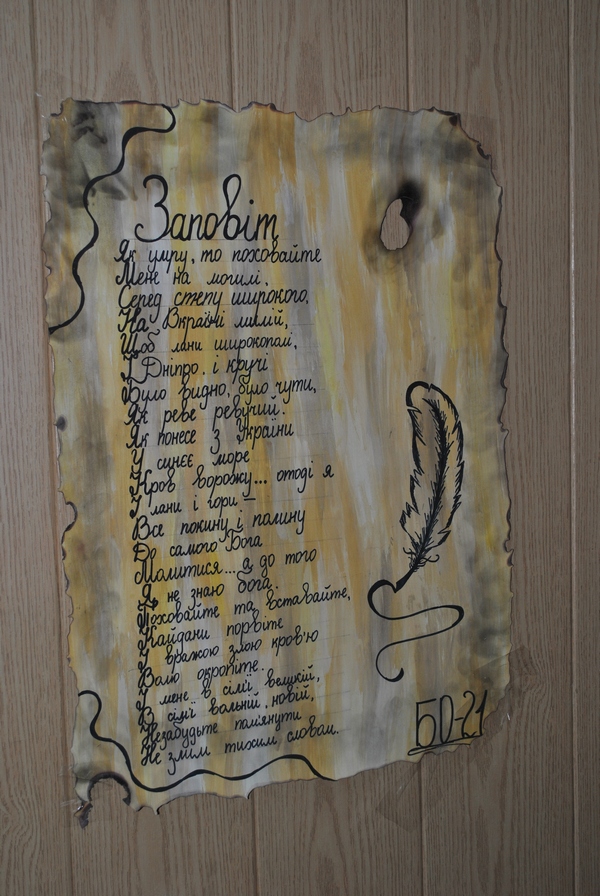 Заповіт
Як умру, то поховайте
Мене на могилі,
Серед степу широкого,
На Вкраїні милій,
Щоб лани широкополі,
І Дніпро, і кручі
Було видно, було чути,
Як реве ревучий.
Як понесе з України
У синєє море
Кров ворожу... отоді я
І лани і гори —
Все покину і полину
До самого Бога
Молитися... а до того
Я не знаю бога.
Поховайте та вставайте,
Кайдани порвіте
І вражою злою кров'ю
Волю окропіте.
І мене в сім'ї великій,
В сім'ї вольній, новій,
Незабудьте пом'янути
Не злим тихим словом.
БО-21